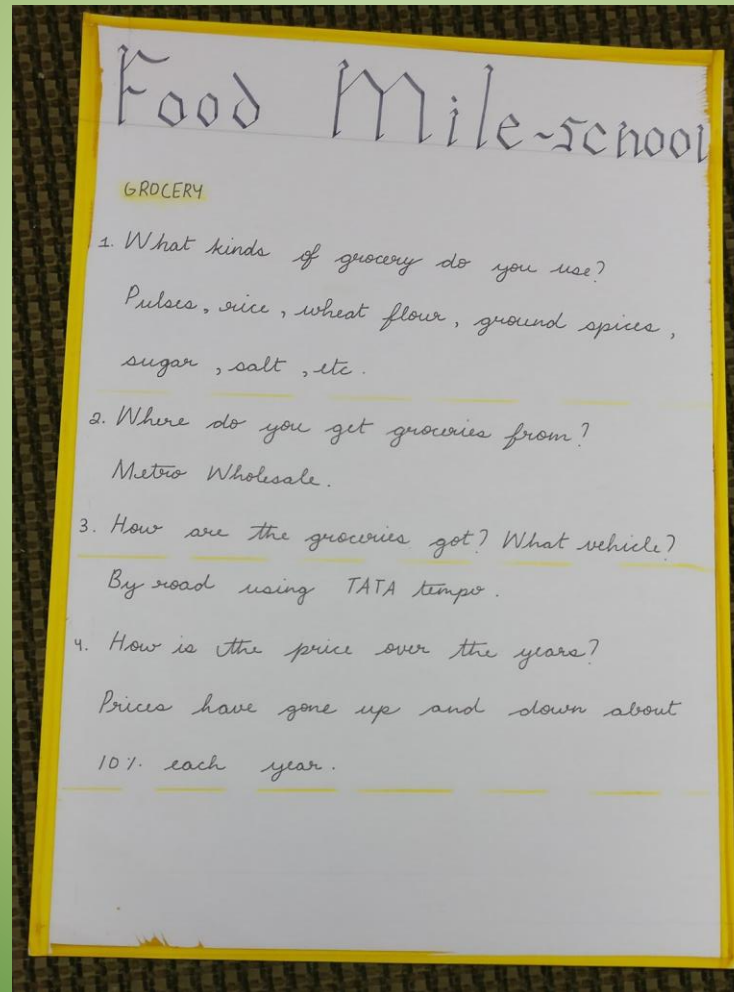 Food Mile-school
GROCERY
1. What kinds of grocery do you use?
Pulses, rice, wheat flour, ground spices,
sugar, salt, etc.
2. Where do you get groceries from?
Metro Wholesale.
3. How are the groceries got? What vehicle?
By road using TATA tempo.
4. How is the price over the years?
Prices have gone up and down about
10%. each year.